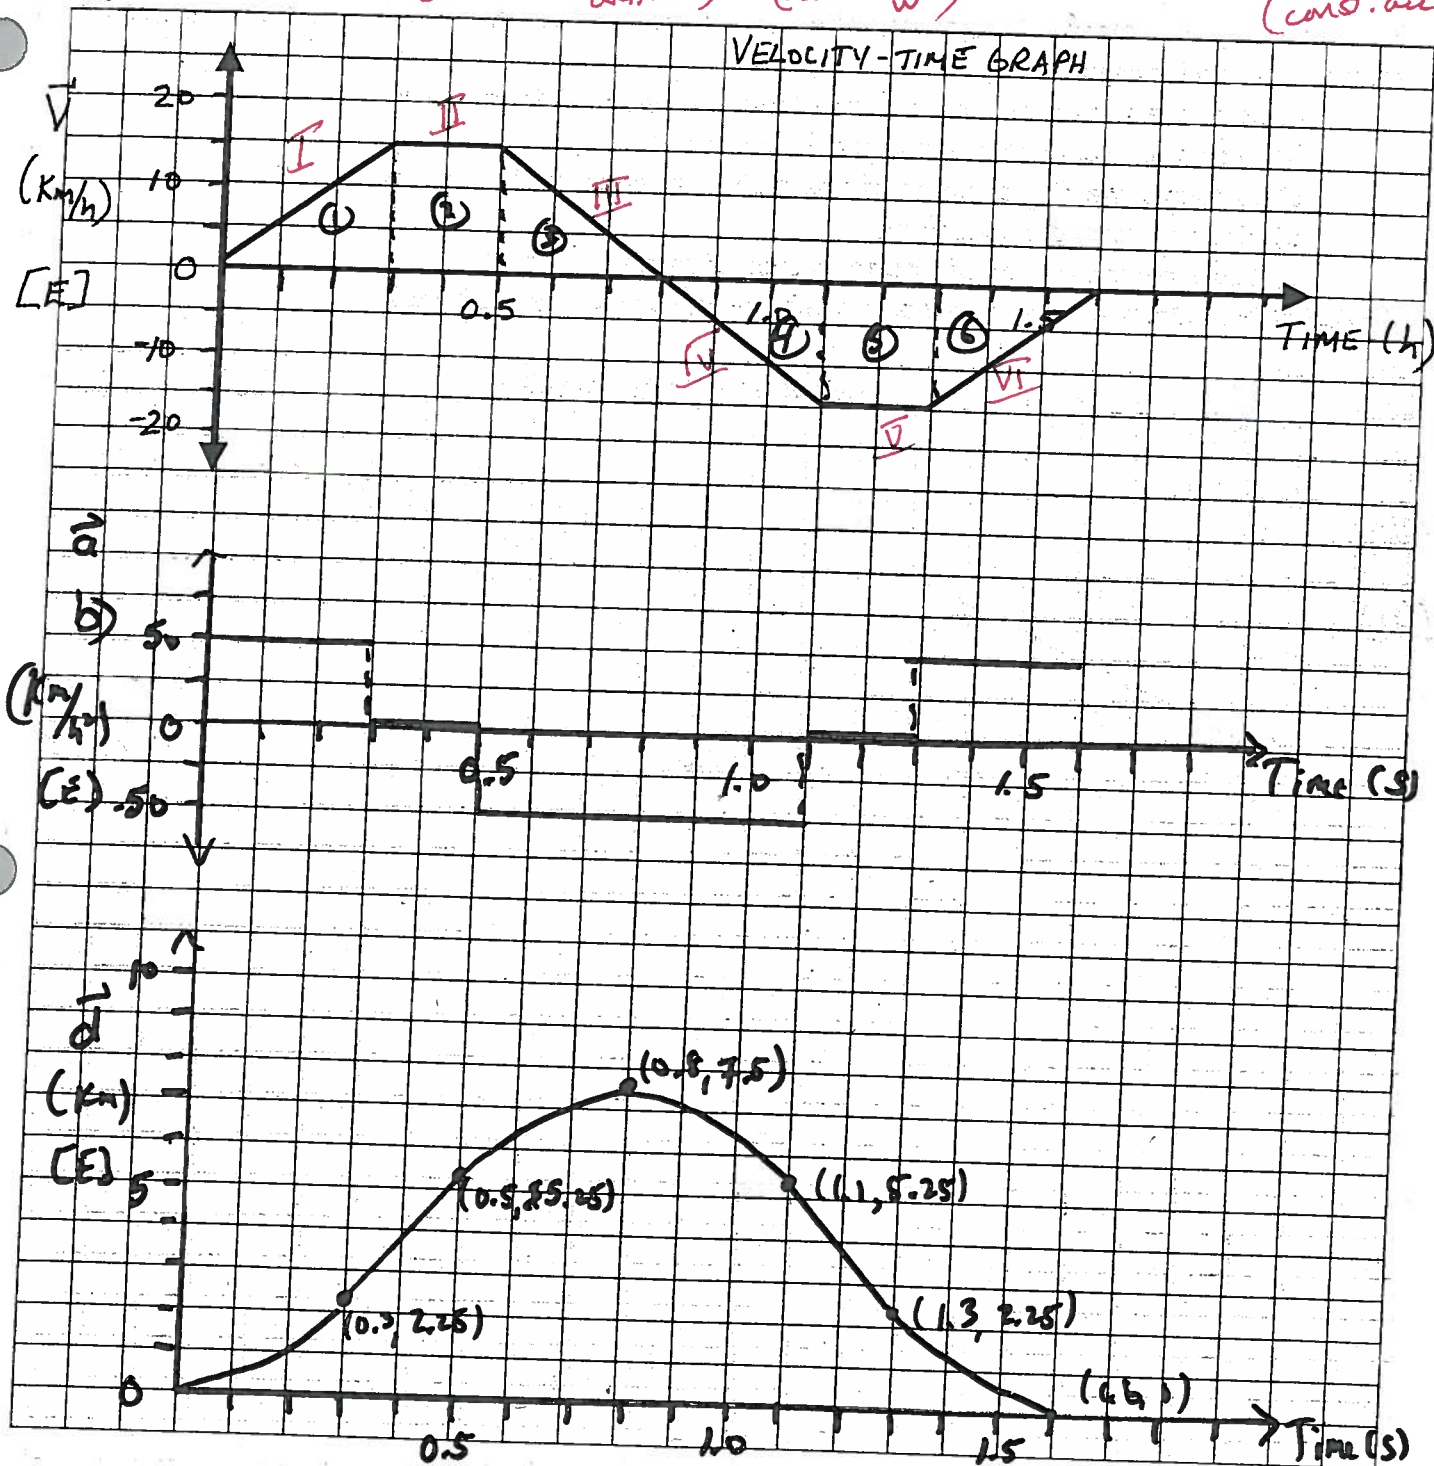 (const. acc
VELOCITY-TIME GRAPH
V
(Km/h)
[E]
20
10
0
-10
-20
I
II
III
IV
V
VI
①
②
③
④
⑤
⑥
0.5
1.0
1.5
TIME (h)
a
b)
(Km/h²)
[E]
50
0
-50
0.5
1.0
1.5
Time (s)
d
(Km)
[E]
10
5
0
(0.3, 2.25)
(0.5, 5.25)
(0.8, 7.5)
(1.1, 5.25)
(1.3, 2.25)
0.5
1.0
1.5
Time (s)